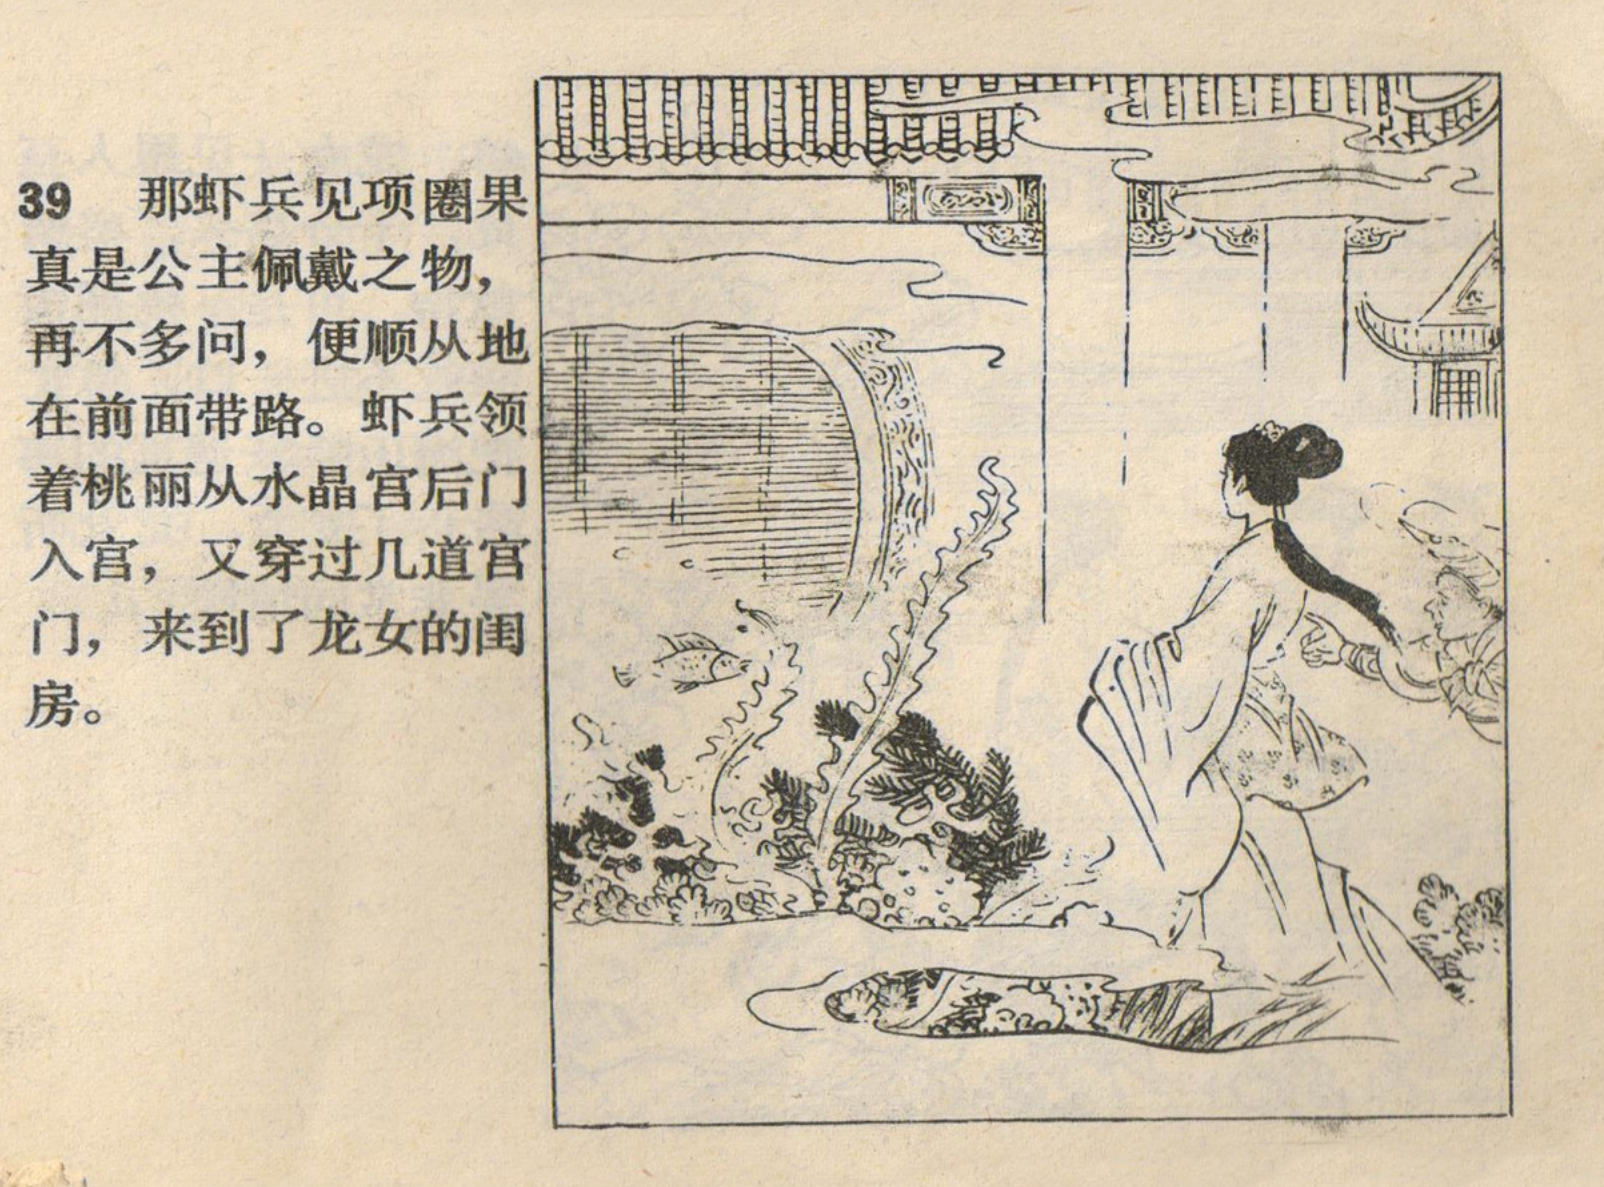 39 那虾兵见项圈果
真是公主佩戴之物，
再不多问，便顺从地
在前面带路。虾兵领
着桃丽从水晶宫后门
入宫，又穿过几道宫
门，来到了龙女的闺
房。